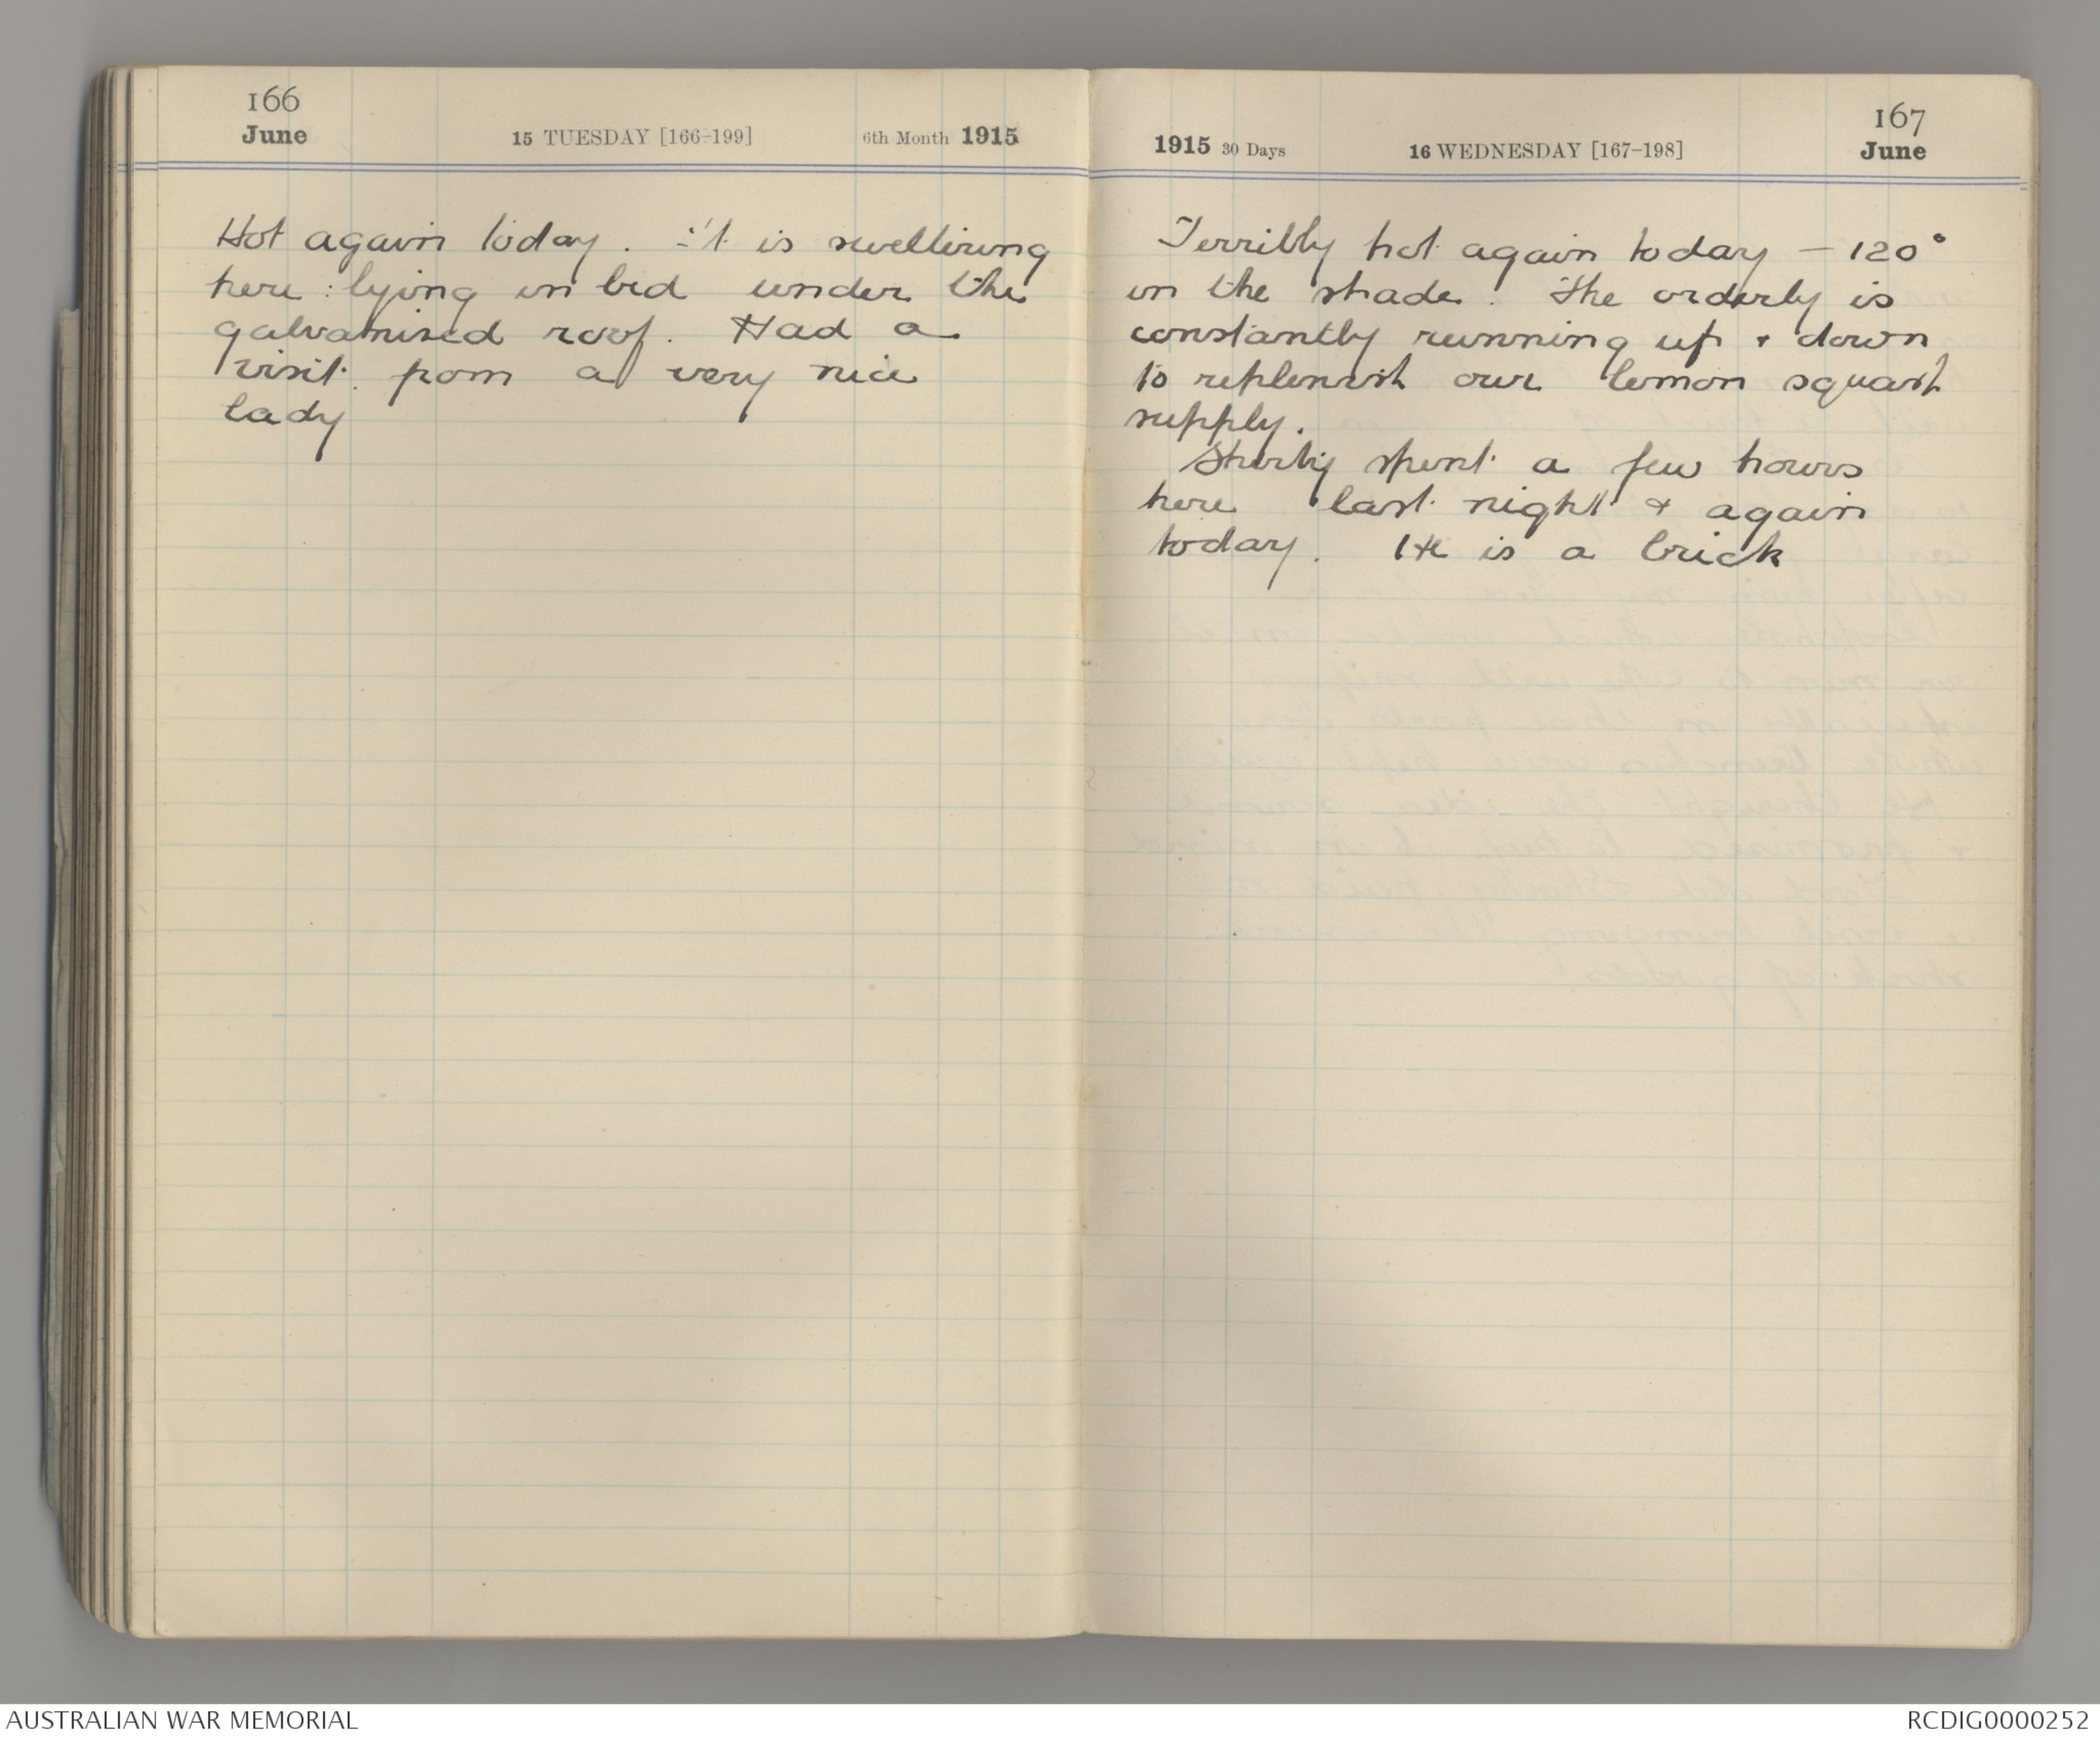 166
June
15 TUESDAY [166-199]
6th Month 1915
Hot again today. It is sweltering
here lying in bed under the
galvanised roof. Had a
visit from a very nice
lady
167
June
1915 30 Days
16 WEDNESDAY [167-198]
Terribly hot again today – 120°
in the shade. The orderly is
constantly running up & down
to replenish our lemon squash
supply.
spent a few hours
here last night & again
today. He is a brick
AUSTRALIAN WAR MEMORIAL
RCDIG0000252